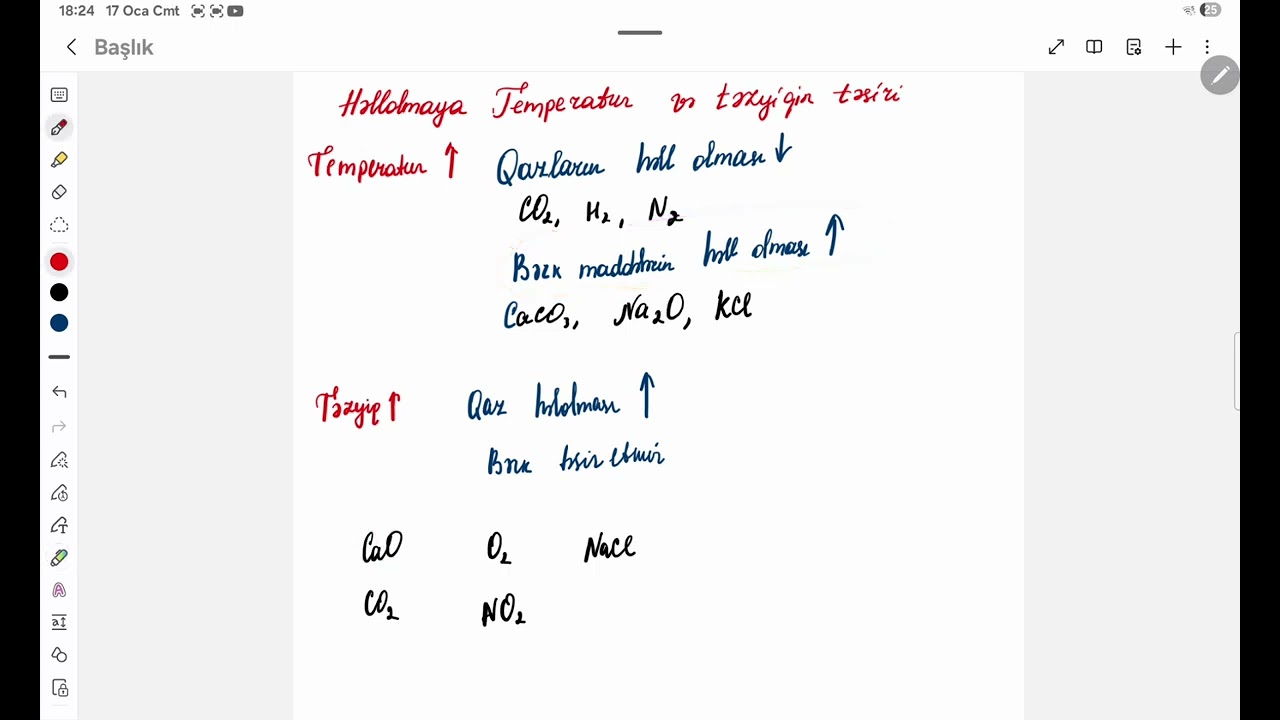 18:24 17 Oca Cmt 25
Başlık
Həllolmaya Temperatur və təzyiqin təsiri
Temperatur ↑ Qazların həll olması ↓
CO₂, H₂, N₂
Bərk maddələrin həll olması ↑
CaCO₃, Na₂O, KCl
Təzyiq ↑ Qaz həllolması ↑
Bərk təsir etmir
CaO O₂ NaCl
CO₂ NO₂